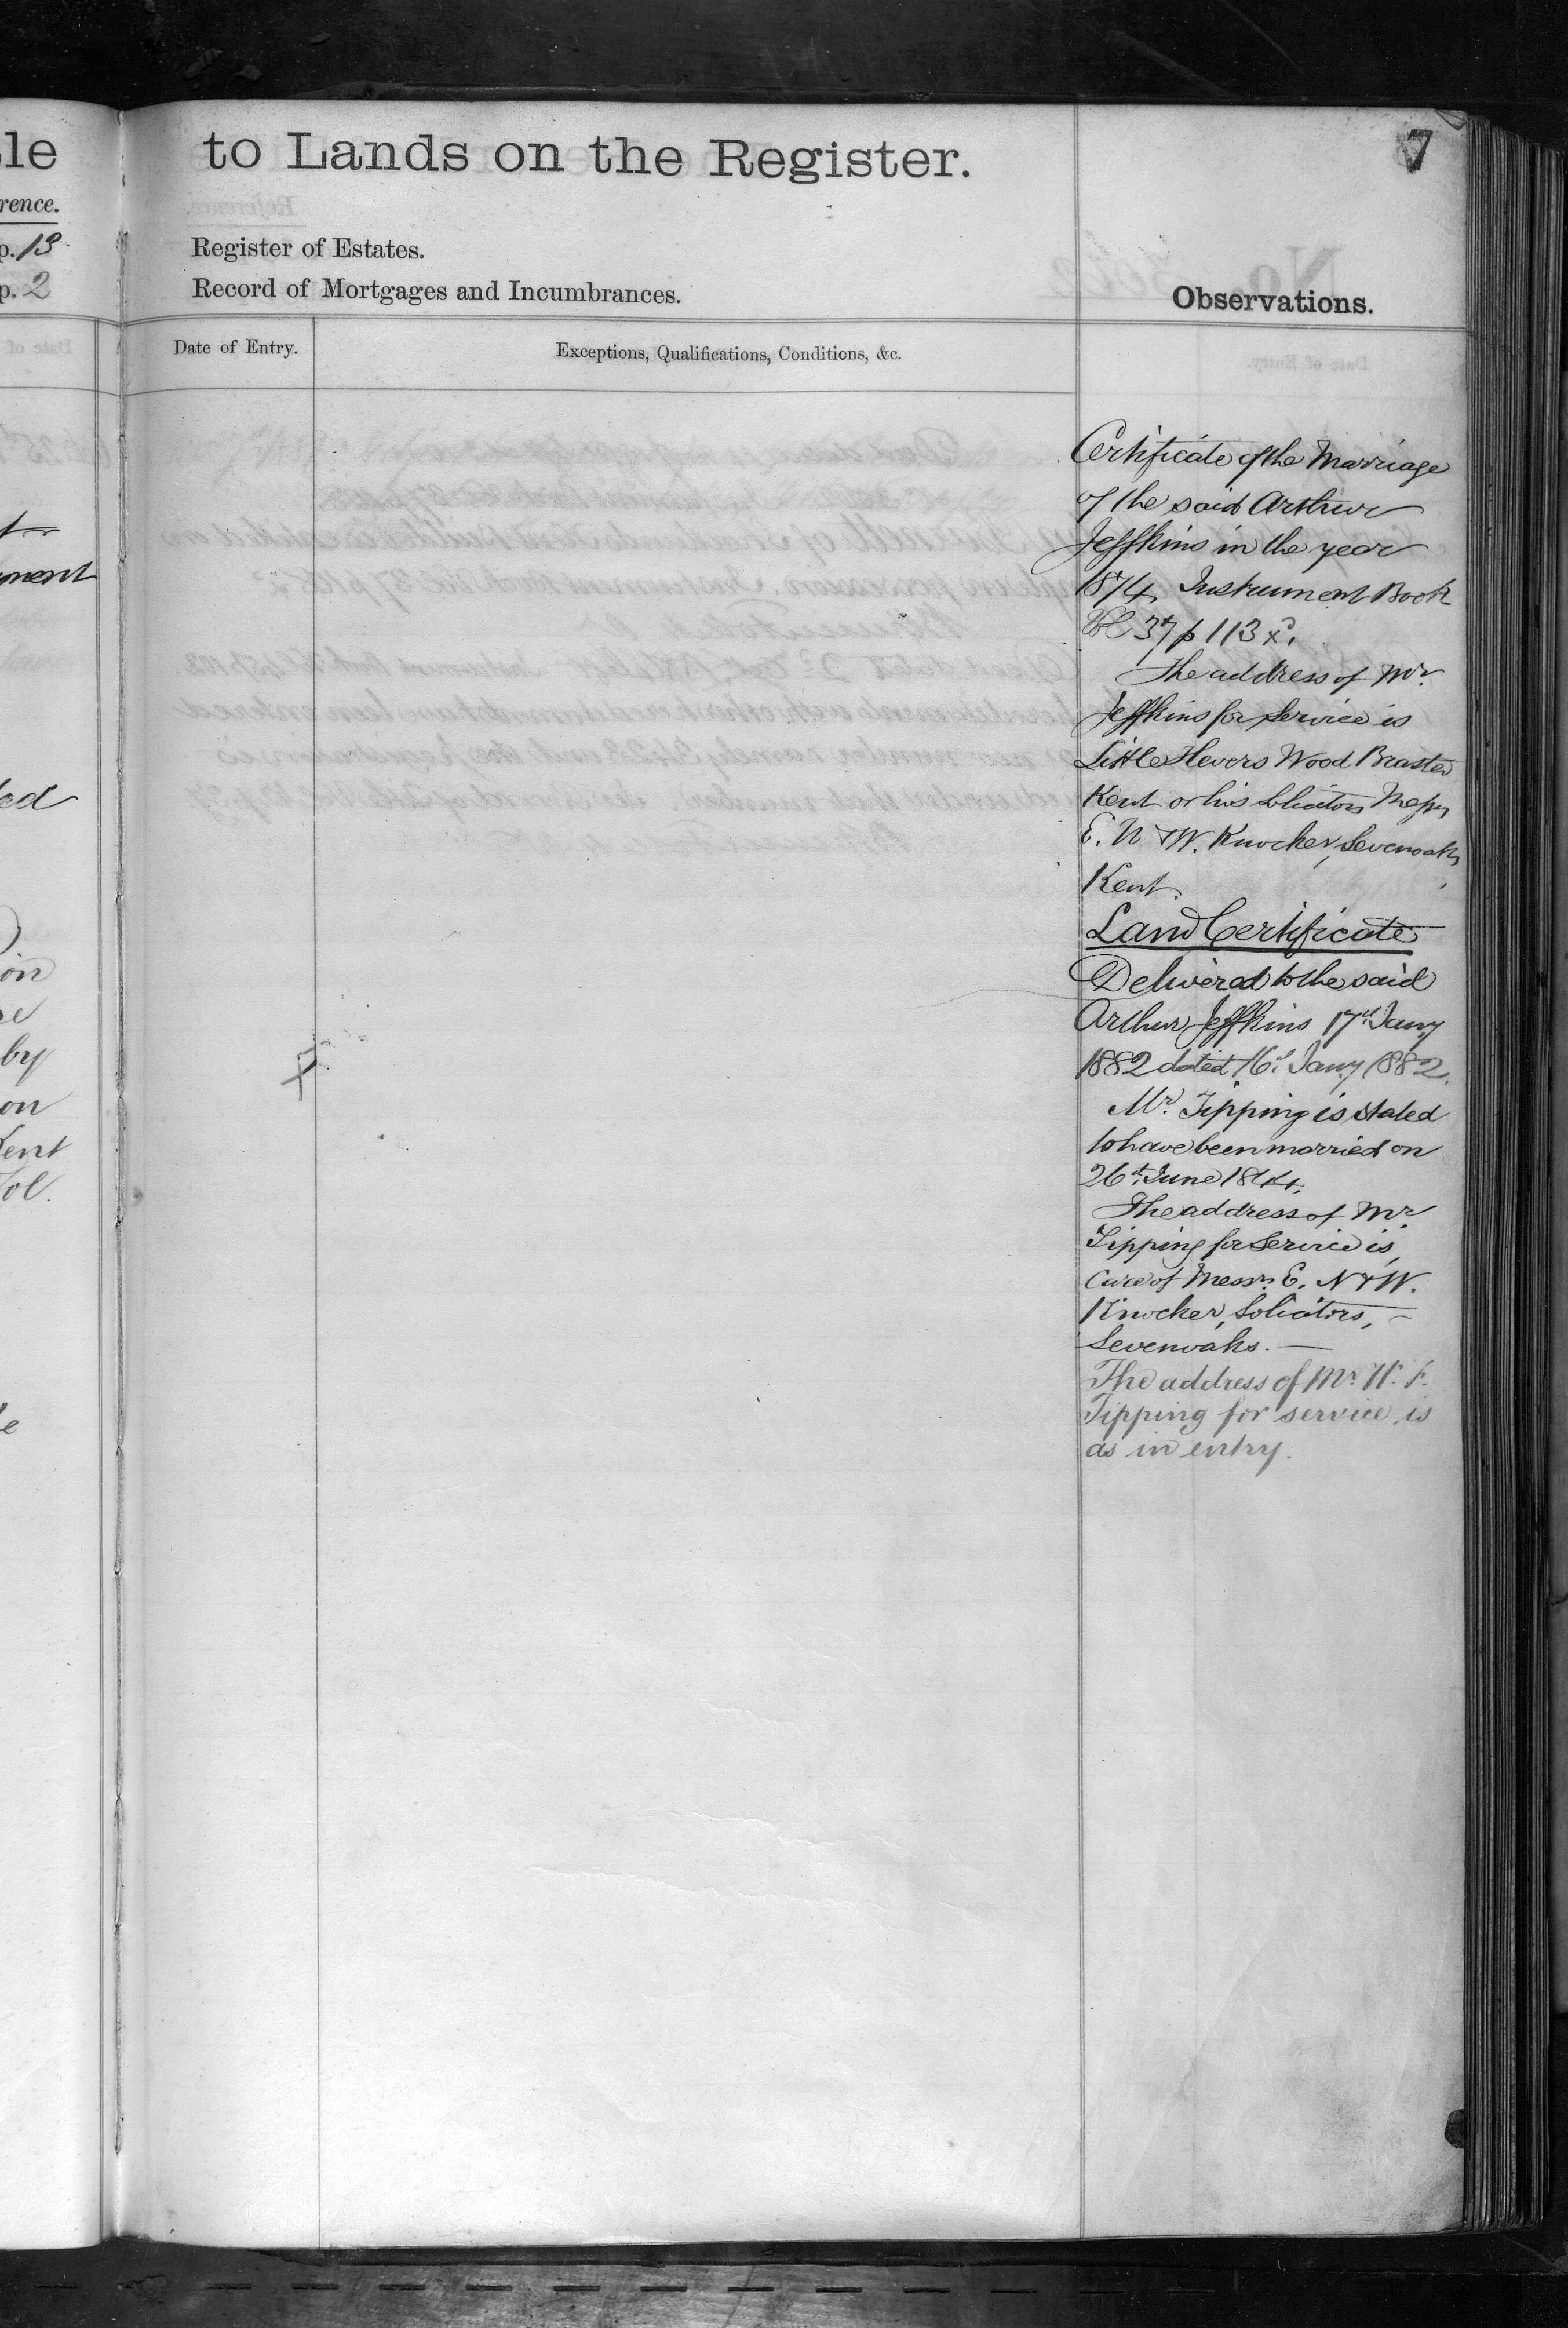 le
to Lands on the Register.
7
rence.
p. 13
Register of Estates.
p. 2
Record of Mortgages and Incumbrances.
Observations.
Date of Entry.
Exceptions, Qualifications, Conditions, &c.
ment
ed
on
re
by
on
Kent
ol.
Certificate of the Marriage
of the said Arthur
Jeffkins in the year
1874, Instrument Book
Vol 37 p 113
The address of Mr.
Jeffkins for service is
Little Hevers Wood Brasted
Kent or his Solicitors Messrs
E. N & W. Knocker, Sevenoaks,
Kent.
Land Certificate
Delivered to the said
Arthur Jeffkins 17th Jany
1882 dated 16th Jany 1882.
Mr. Tipping is stated
to have been married on
26th June 1844.
The address of Mr.
Tipping for Service is,
Care of Messrs. E. N & W.
Knocker, Solicitors, –
Sevenoaks. —
The address of Mr. W. F.
Tipping for service is
as in entry.